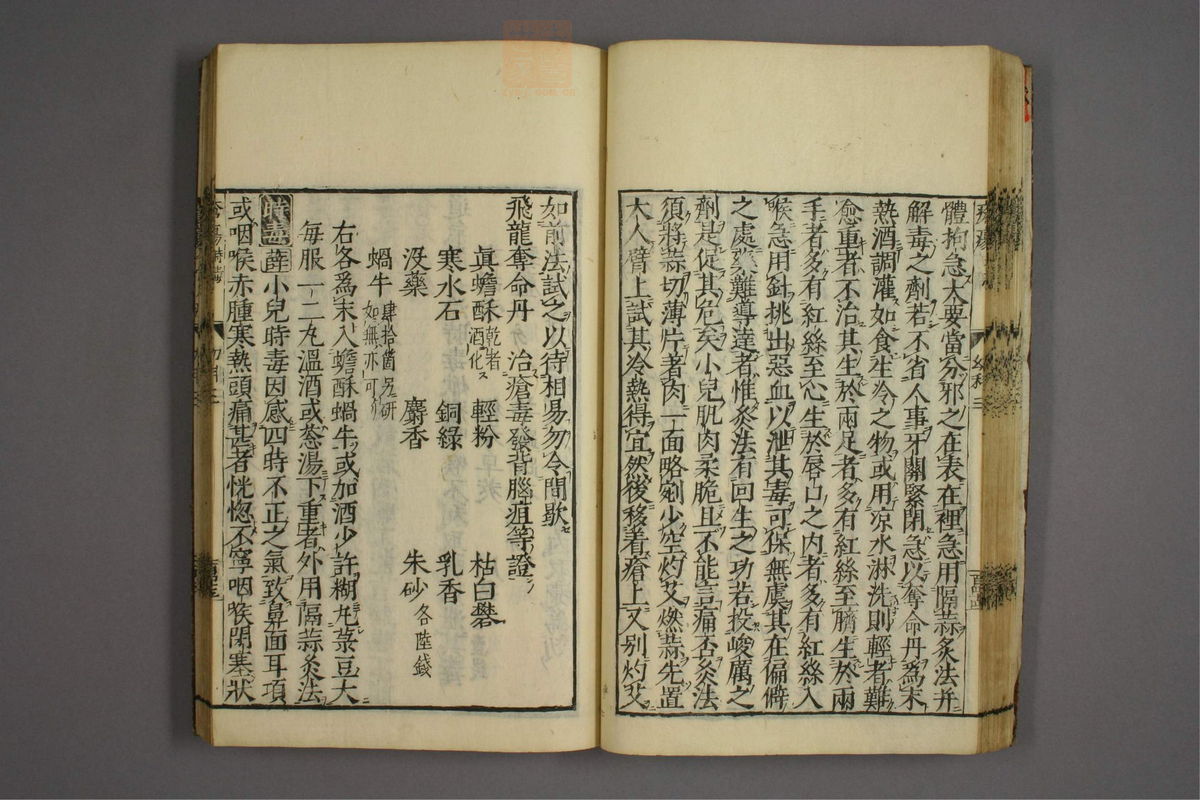 體拘急大要當分邪之在表在裡急用隔蒜灸法并
解毒之劑若不省人事牙關緊閉急以奪命丹爲末
熱酒調灌如食生冷之物或用凉水淋洗則輕者難
愈重者不治其生於兩足者多有紅絲至臍生於兩
手者多有紅絲至心生於唇口之内者多有紅絲入
喉急用針挑出惡血以泄其毒可保無虞其在偏僻
之處藥難導達者惟灸法有回生之功若投峻厲之
劑是促其危矣小兒肌肉柔脆且不能言痛否灸法
須將蒜切薄片着肉一面略剜少空灼艾燃蒜先置
大人臂上試其冷熱得宜然後移着瘡上又别灼艾
如前法試之以待相易勿令間歇
飛龍奪命丹 治瘡毒發背腦疽等證
眞蟾酥 乾者酒化 輕粉 枯白礬
寒水石 銅綠 乳香
没藥 麝香 朱砂 各陸錢
蝸牛 肆拾箇另研如無亦可
右各爲末入蟾酥蝸牛或加酒少許糊丸菉豆大
每服一二丸溫酒或葱湯下重者外用隔蒜灸法
時毒 薛 小兒時毒因感四時不正之氣致鼻面耳項
或咽喉赤腫寒熱頭痛甚者恍惚不寧咽喉閉塞狀